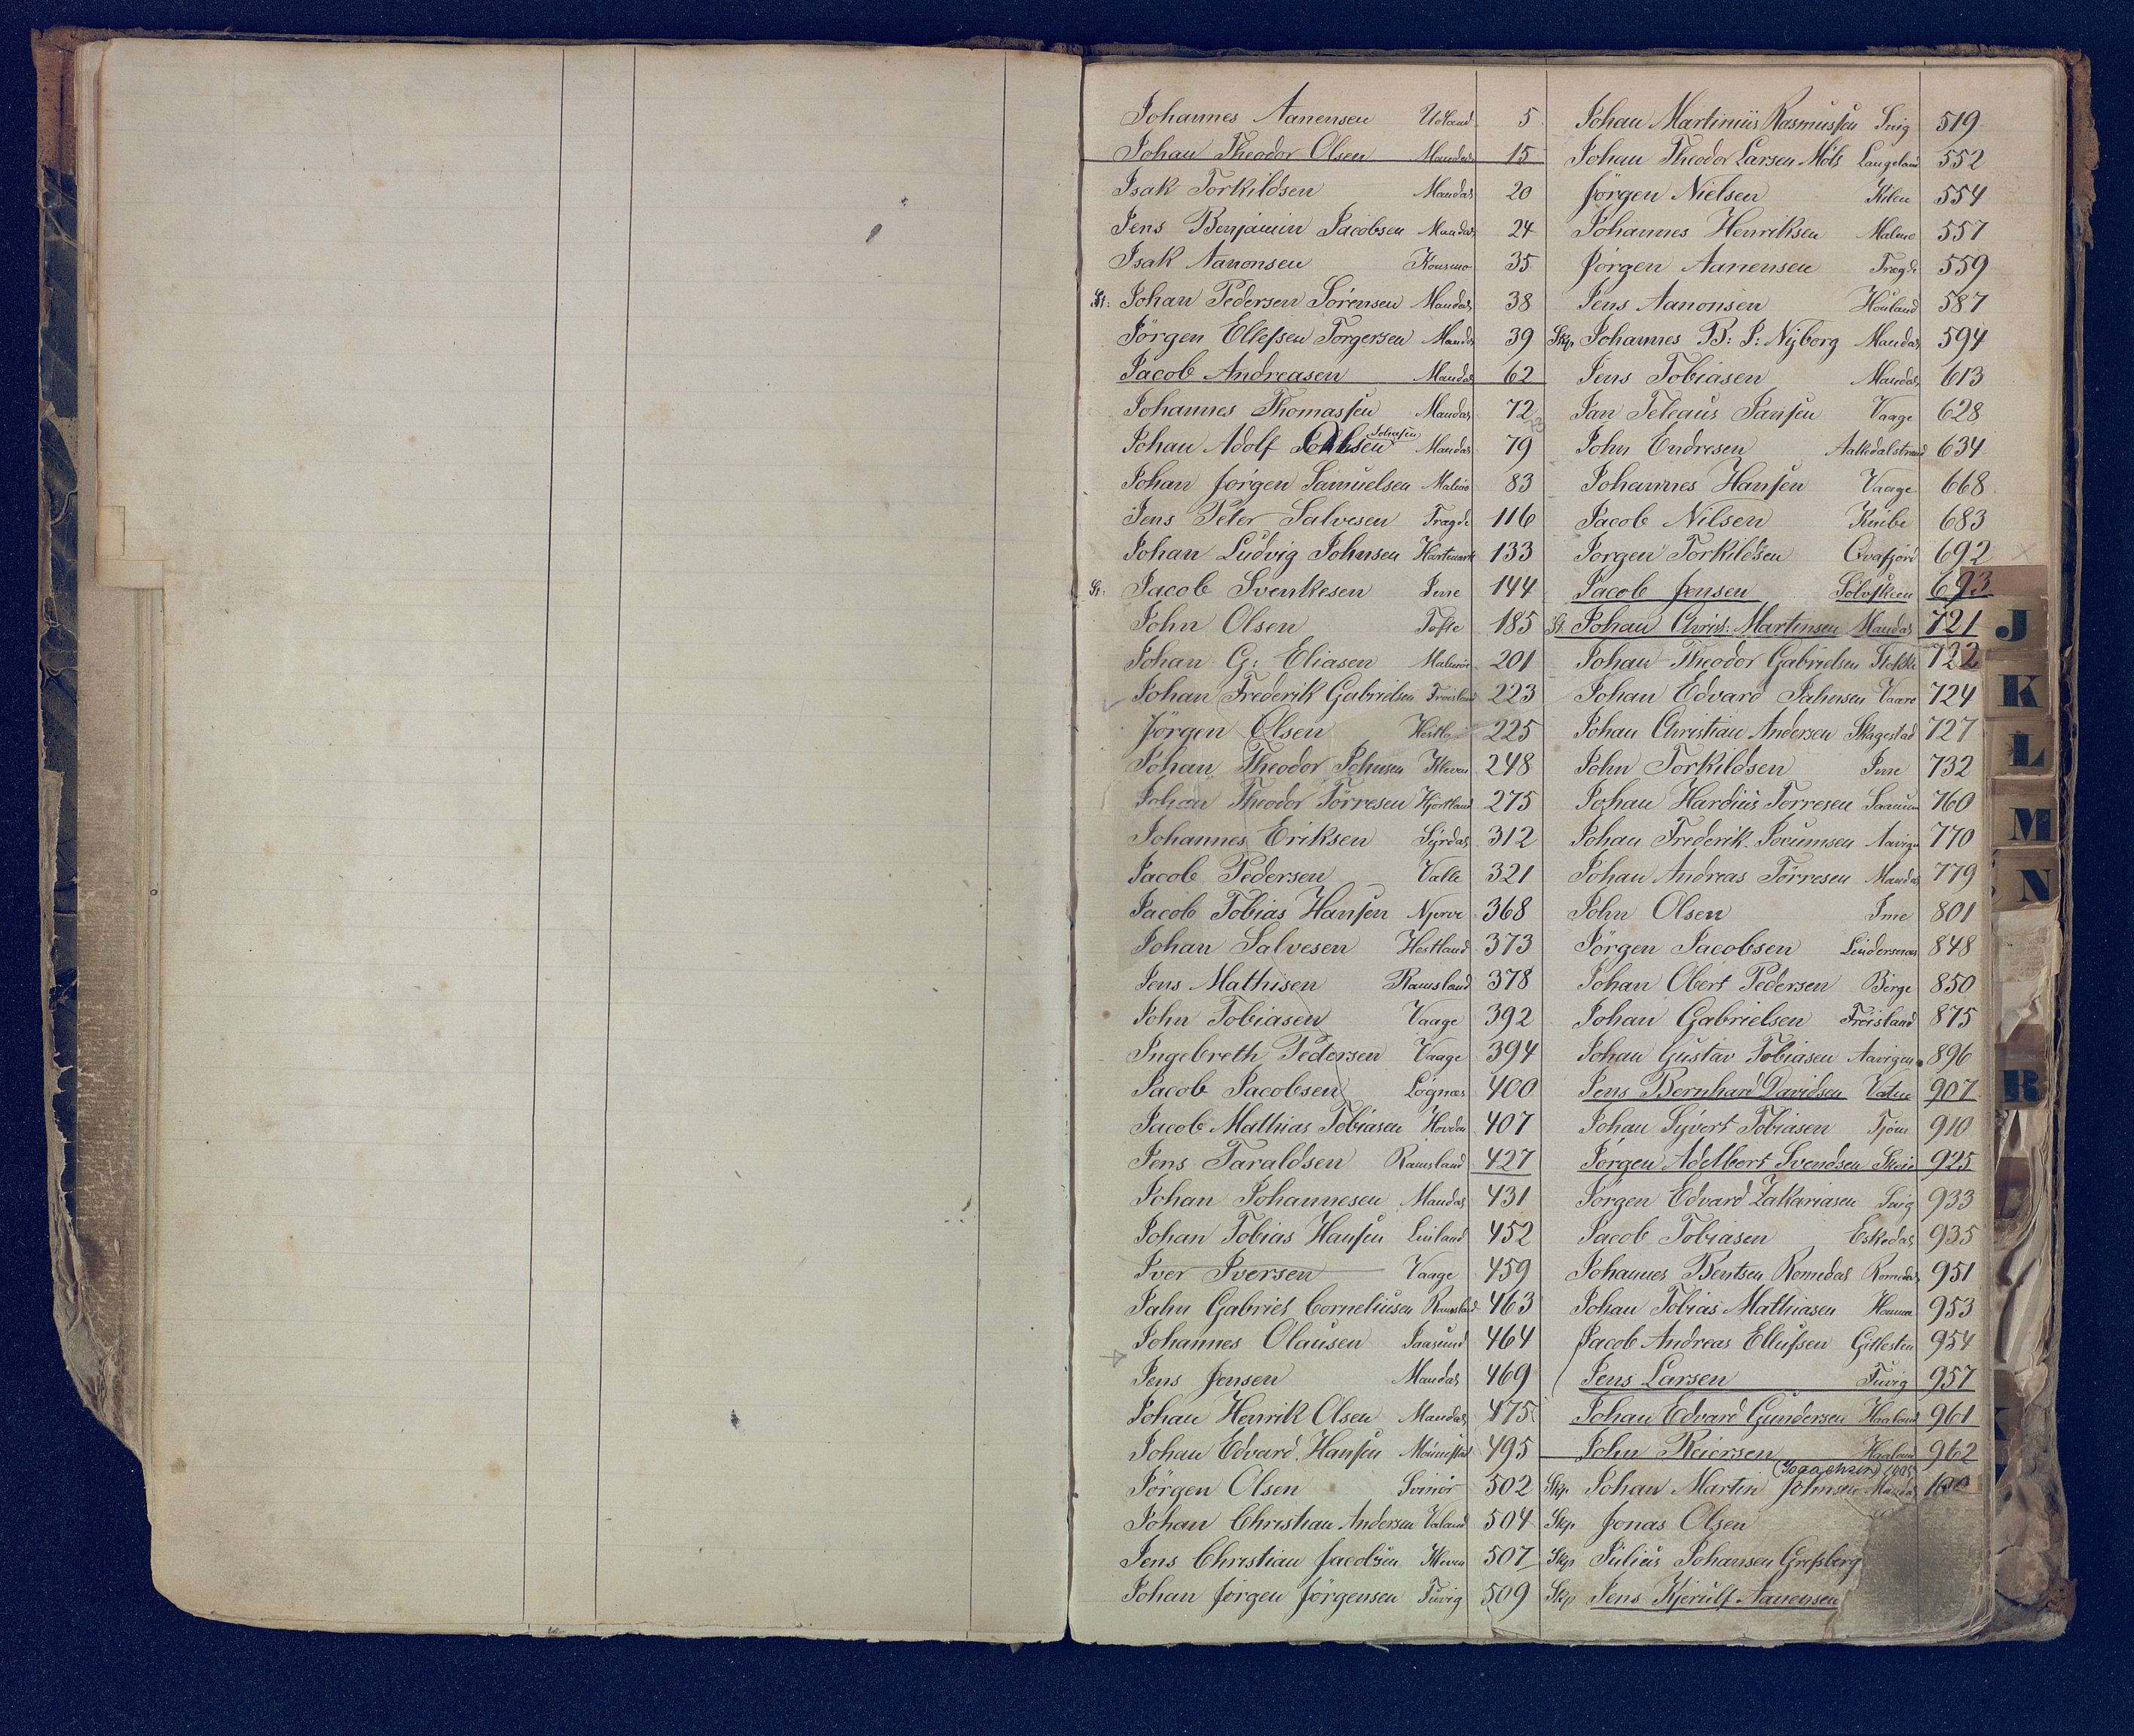 Johannes Aanensen Udland 5
Johan Theodor Olsen Mandal 15
Isak Torkildsen Mandal 20
Jens Benjamin Jacobsen Mandal 24
Isak Aanonsen Konsmo 35
St: Johan Pedersen Sörensen Mandal 38
Jörgen Ellefsen Torgersen Mandal 39
Jacob Andreasen Mandal 62
Johannes Thomassen Mandal 72
Johan Adolf Olsen Mandal 79
Johan Jörgen Samuelsen Malmö 83
Jens Peter Salvesen Trægde 116
Johan Ludvig Johnsen Hartmark 133
St: Jacob Svenkesen Ime 144
John Olsen Tofte 185
Johan G: Eliasen Malmö 201
Johan Frederik Gabrielsen Fröisland 223
Jörgen Olsen 225
Johan Theodor Johnsen Kleven 248
Johan Theodor Törresen Hjortland 275
Johannes Eriksen Syrdal 312
Jacob Pedersen Valle 321
Jacob Tobias Hansen Njerve 368
Johan Salvesen Hestland 373
Jens Mathisen Ramsland 378
John Tobiasen Vaage 392
Ingebreth Pedersen Vaage 394
Jacob Jacobsen Lögnæs 400
Jacob Mathias Tobiasen Hovden 407
Jens Taraldsen Ramsland 427
Johan Johannesen Mandal 431
Johan Tobias Hansen Linland 452
Iver Iversen Vaage 459
Jahn Gabriel Corneliusen Ramsland 463
Johannes Olausen 464
Jens Jensen Mandal 469
Johan Henrik Olsen Mandal 475
Johan Edvard Hansen 495
Jörgen Olsen Svinör 502
Johan Christian Andersen Valand 504
Jens Christian Jacobsen Kleven 507
Johan Jörgen Jörgensen Tuvig 509
Johan Martinius Rasmussen Snig 519
Johan Theodor Larsen Möls Langeland 552
Jörgen Nielsen Kilen 554
Johannes Henriksen Malmö 557
Jörgen Aanensen Trægde 559
Jens Aanonsen Houland 587
Skp. Johannes B: P: Nyborg Mandal 594
Jens Tobiasen Mandal 613
Jan Teleaus Jansen Vaage 628
John Endresen 634
Johannes Hansen Vaage 668
Jacob Nilsen Knibe 683
Jörgen Torkildsen Qvafjord 692
Jacob Jensen 693
St. Johan Christ: Martinsen Mandal 721
Johan Theodor Gabrielsen 722
Johan Edvard Jahnsen 724
Johan Christian Andersen Skagestad 727
John Torkildsen Ime 732
Johan Hardius Torresen Saanum 760
Johan Frederik 770
Johan Andreas Törresen Mandal 779
John Olsen Ime 801
Jörgen Jacobsen Lindersnæs 848
Johan Obert Pedersen Birge 850
Johan Gabrielsen Fröisland 875
Johan Gustav Tobiasen Aavigen 896
Jens Bernhard Davidsen Vatne 907
Johan Syvert Tobiasen Tjöm 910
Jörgen Adelbert Svendsen Skeie 925
Jörgen Edvard Zakariasen Snig 933
Jacob Tobiasen Eskedal 935
Johannes Bentsen Romedal Romedal 951
Johan Tobias Mathiasen Homme 953
Jacob Andreas Ellefsen Gillesten 954
Jens Larsen Tuvig 957
Johan Edvard Gundersen Haaland 961
John Reiersen Haaland 962
(Joachsen)
Skp. Johan Martin Johnsen Mandal
Skp. Jonas Olsen
Skp. Julius Johansen Grefsberg
Skp. Jens Kjerulf Aanensen
J
K
L
M
N
R